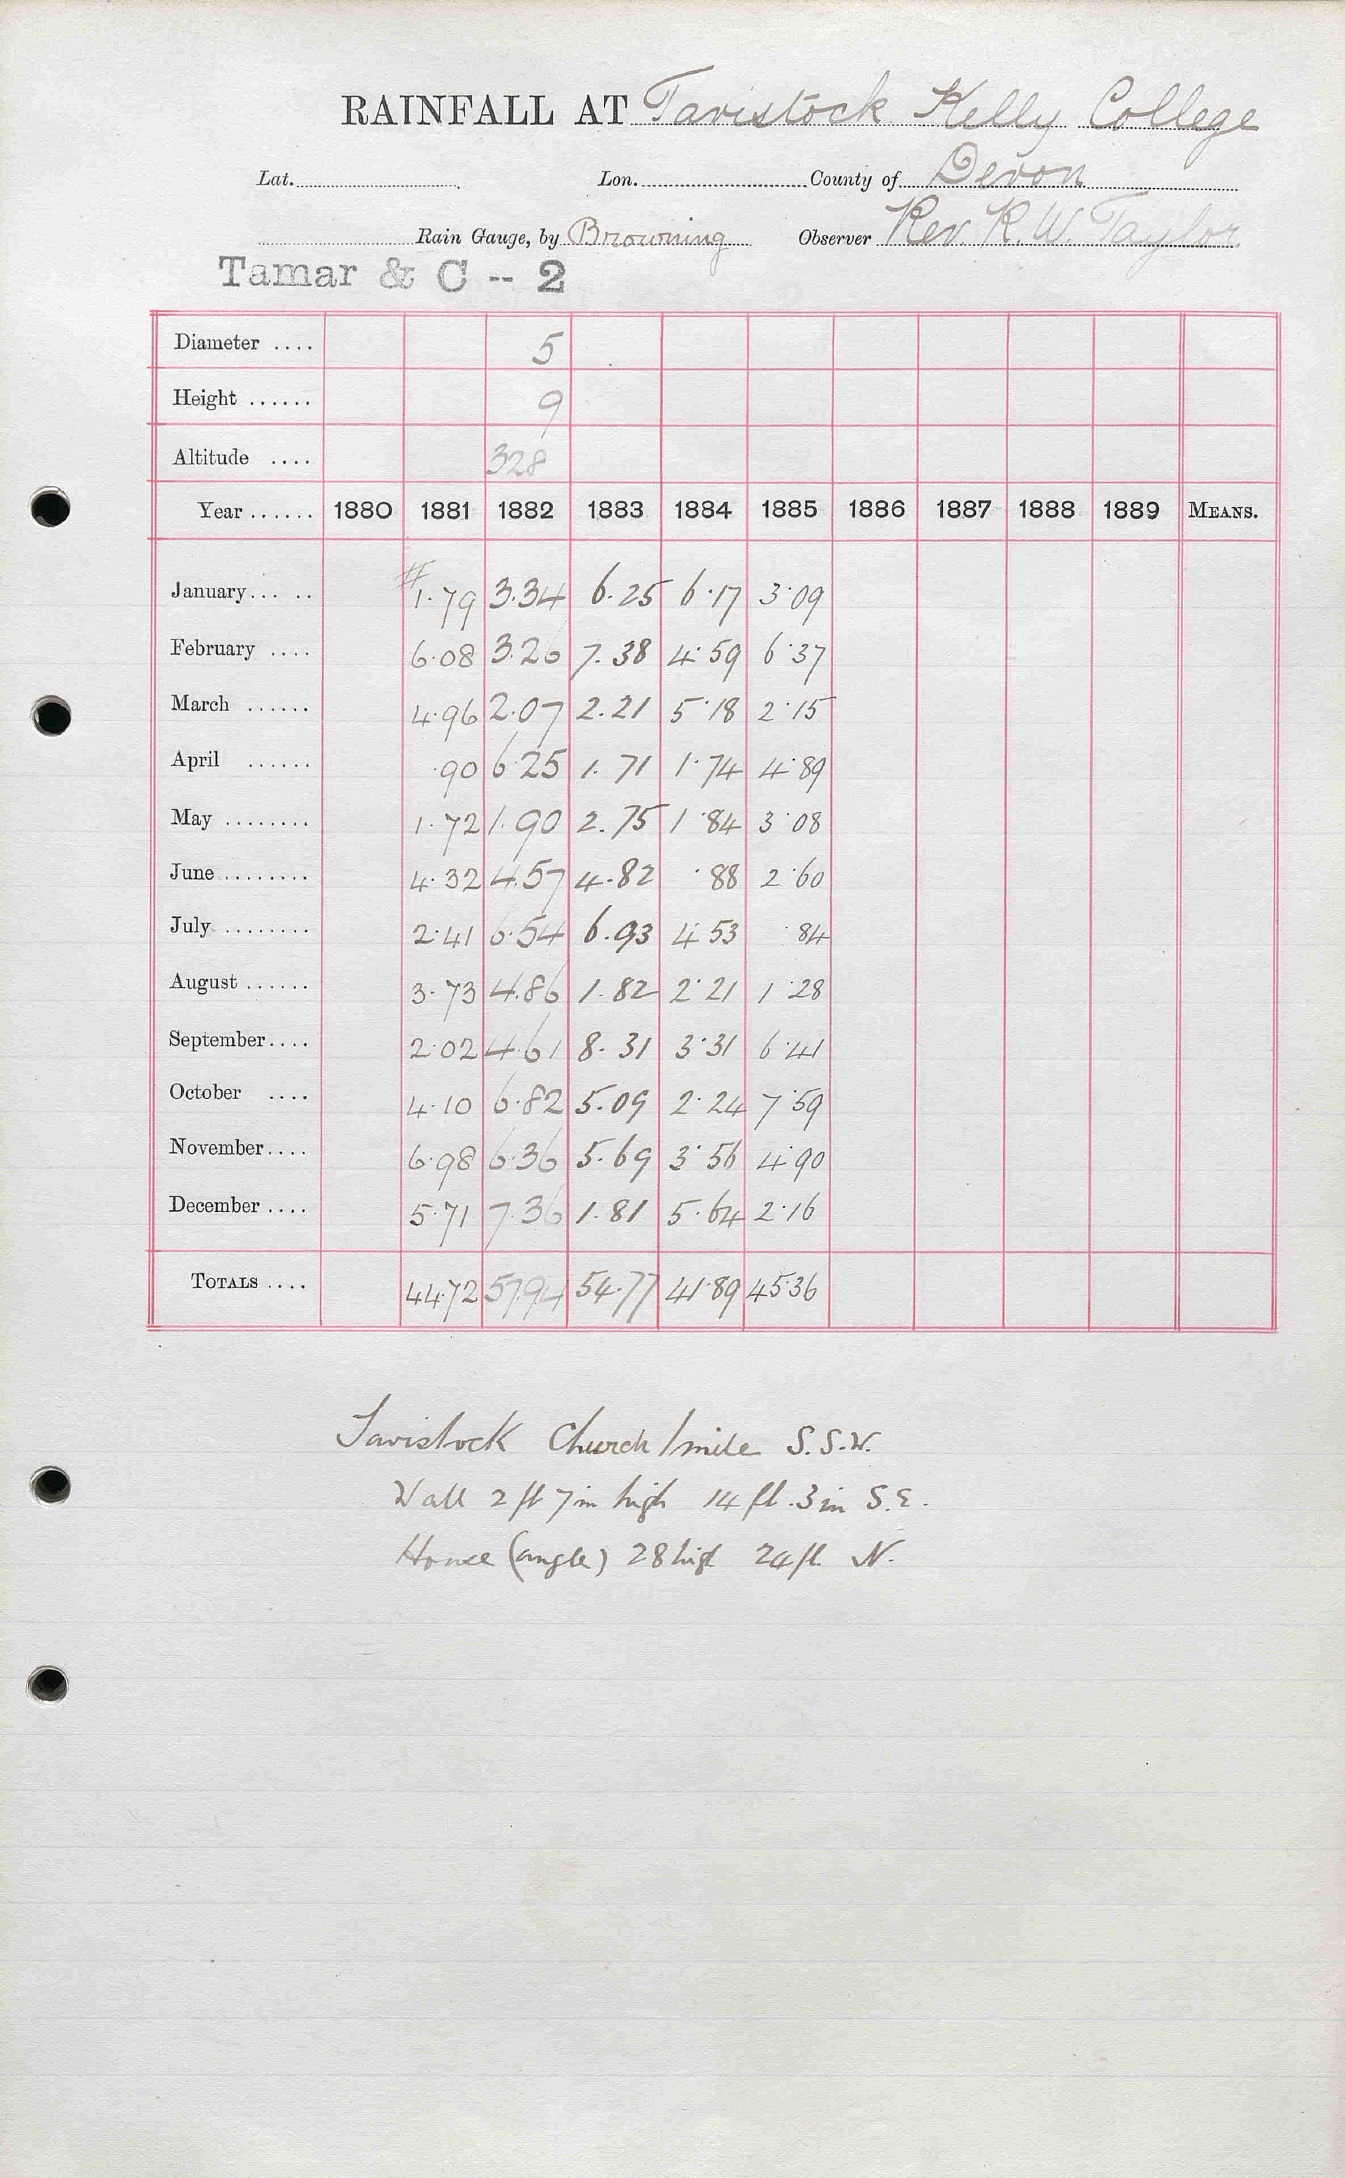 RAINFALL AT Tavistock Kelly College
Lat. Lon. County of Devon
Rain Gauge, by Browning Observer Rev. R. W. Taylor
Tamar & C -- 2
Diameter .... 5
Height ...... 9
Altitude .... 328
Year ...... 1880 1881 1882 1883 1884 1885 1886 1887 1888 1889 MEANS.
January... .. # 1.79 3.34 6.25 6.17 3.09
February .... 6.08 3.26 7.38 4.59 6.37
March ...... 4.96 2.07 2.21 5.18 2.15
April ...... .90 6.25 1.71 1.74 4.89
May ........ 1.72 1.90 2.75 1.84 3.08
June ........ 4.32 4.57 4.82 .88 2.60
July ........ 2.41 6.54 6.93 4.53 .84
August ...... 3.73 4.86 1.82 2.21 1.28
September.... 2.02 4.61 8.31 3.31 6.41
October .... 4.10 6.82 5.09 2.24 7.59
November.... 6.98 6.36 5.69 3.56 4.90
December .... 5.71 7.36 1.81 5.64 2.16
TOTALS .... 44.72 57.94 54.77 41.89 45.36
Tavistock Church 1 mile S.S.W.
Wall 2 ft 7 in high 14 ft. 3 in S.E.
House (angle) 28 high 24 ft. N.